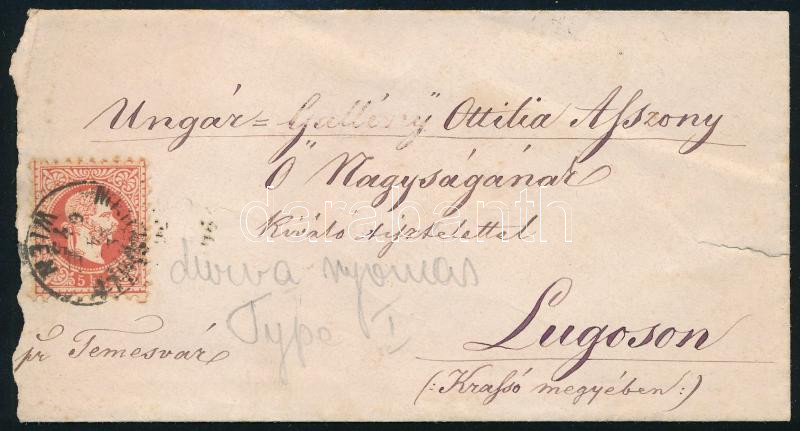 Ungár = Gallény Ottilia Asszony
Ő Nagyságának
Kiváló tisztelettel
durva nyomás
Type I
Lugoson
pr Temesvár
(: Krassó megyében :)
WIEN
5
darabanth